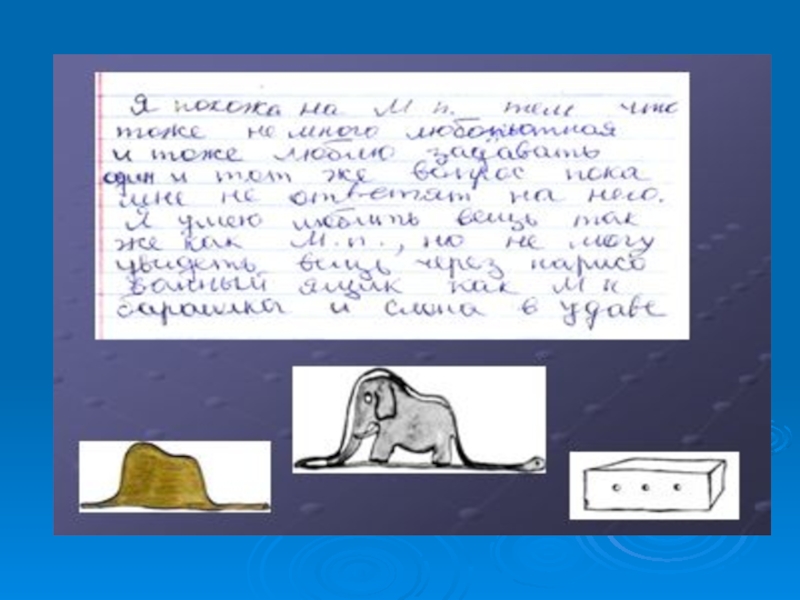 Я похожа на М п. тем что
тоже немного любопытная
и тоже люблю задавать
один и тот же вопрос пока
мне не ответят на него.
Я умею любить вещь так
же как М.п., но не могу
увидеть вещь через нарисо
ванный ящик как М п
барашка и слона в удаве